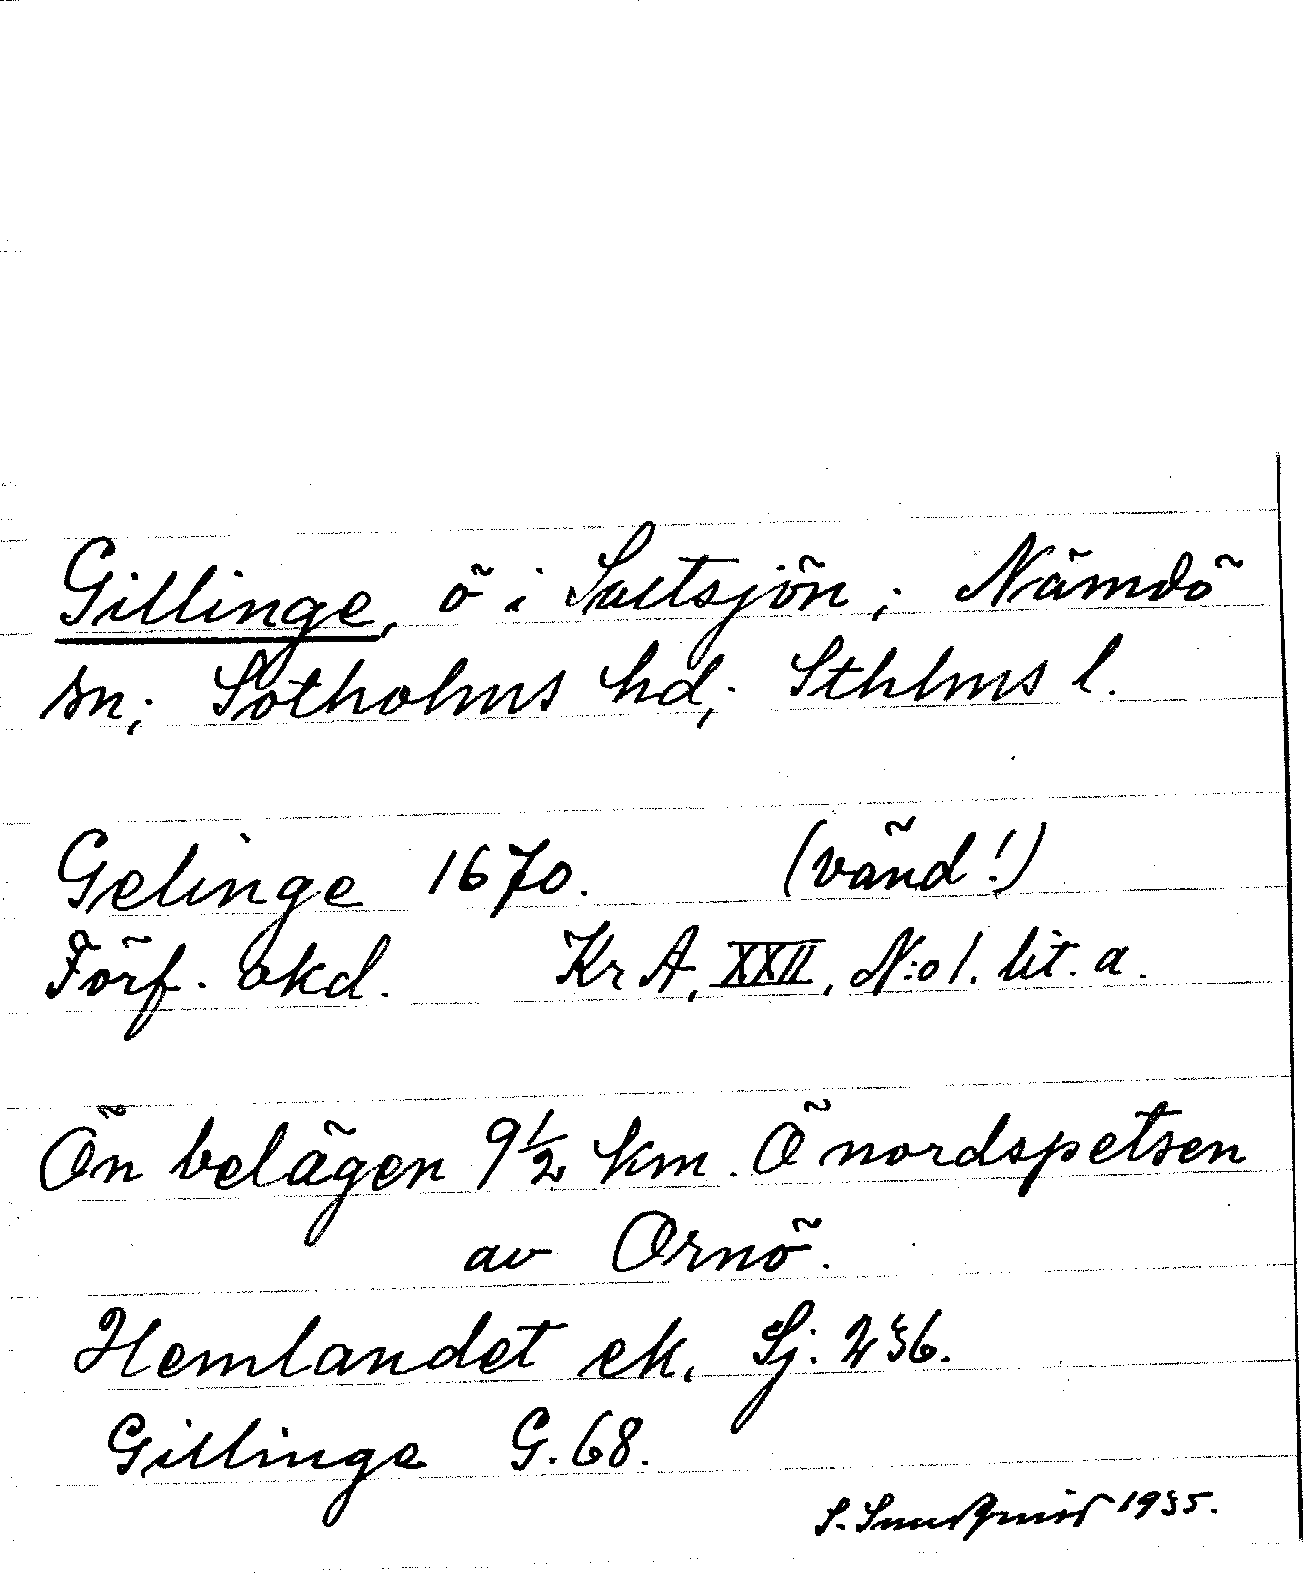 Gillinge, ö i Saltsjön; Nämdö
sn; Sotholms hd; Sthlms l.
Gelinge 1670. (vänd!)
Förf. okd. Kr A, XXII, N:o 1. lit. a.
Ön belägen 9½ km. Ö nordspetsen
av Ornö.
Hemlandet ek. Sj. 236.
Gillinge G. 68.
S. 1935.